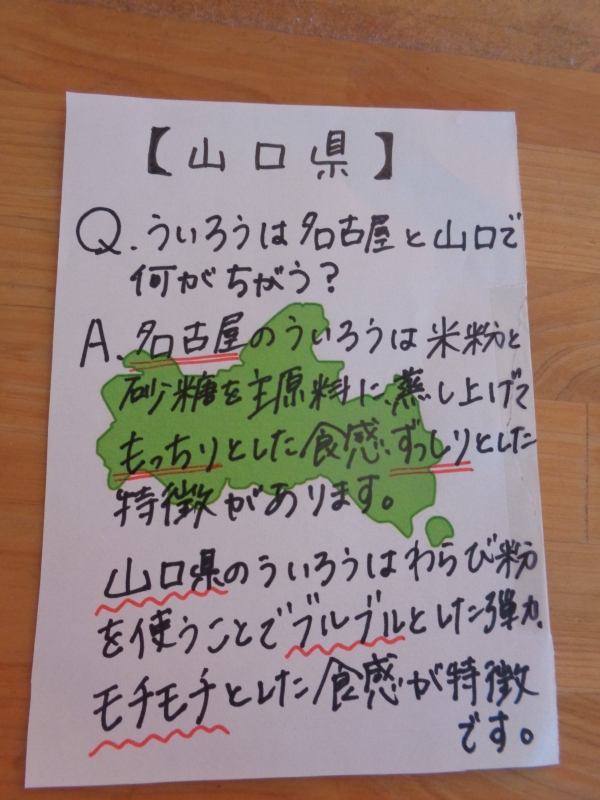 【山口県】
Q.ういろうは名古屋と山口で
何がちがう?
A.名古屋のういろうは米粉と
砂糖を主原料に、蒸し上げて
もっちりとした食感、ずっしりとした
特徴があります。
山口県のういろうはわらび粉
を使うことでブルブルとした弾力、
モチモチとした食感が特徴
です。